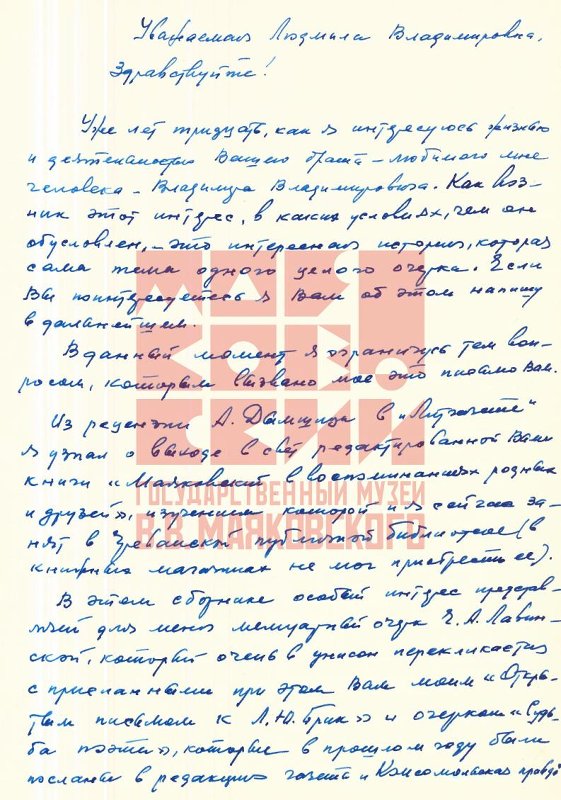 Уважаемая Людмила Владимировна,
Здравствуйте!
Уже лет тридцать, как я интересуюсь жизнью
и деятельностью Вашего брата – любимого мне
человека – Владимира Владимировича. Как воз-
ник этот интерес, в каких условиях, чем он
обусловлен, – это интересная история, которая
сама тема одного целого очерка. Если
Вы поинтересуетесь я Вам об этом напишу
в дальнейшем.
В данный момент я ограничусь тем воп-
росом, которым вызвано мое это письмо Вам.
Из рецензии А. Дымшица в „Литгазете"
я узнал о выходе в свет редактированной Вами
книги „Маяковский в воспоминаниях родных
и друзей», изучением которой и я сейчас за-
нят в Ереванской публичной библиотеке (в
книжных магазинах не мог приобрести ее).
В этом сборнике особый интерес представ-
ляет для меня мемуарный очерк Е. А. Лавин-
ской, который очень в унисон перекликается
с присланными при этом Вам моим „Откры-
тым письмом к Л. Ю. Брик» и очерком „Судь-
ба поэта», которые в прошлом году были
посланы в редакцию газеты „Комсомольская правда
МАЯКОВСКИЙ
ГОСУДАРСТВЕННЫЙ МУЗЕЙ
В.В. МАЯКОВСКОГО